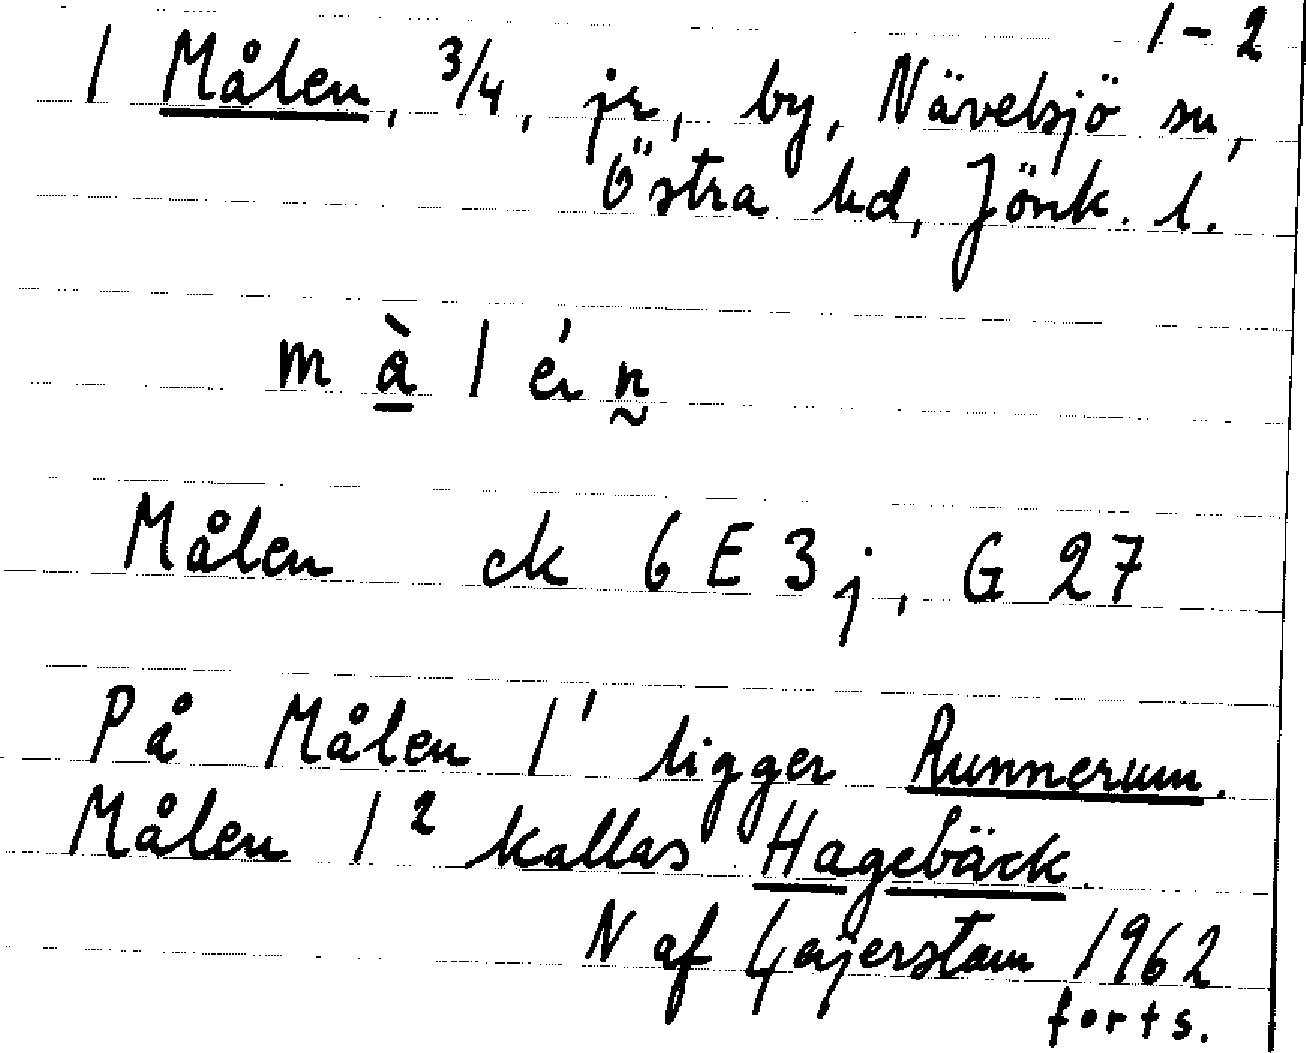 1-2
1 Målen, 3/4, jr, by, Nävelsjö sn,
Östra hd, Jönk. l.
m à l én
Målen ek 6 E 3 j, G 27
På Målen 1¹ ligger Runnerum.
Målen 1² kallas Hagebäck.
N af Geijerstam 1962
forts.